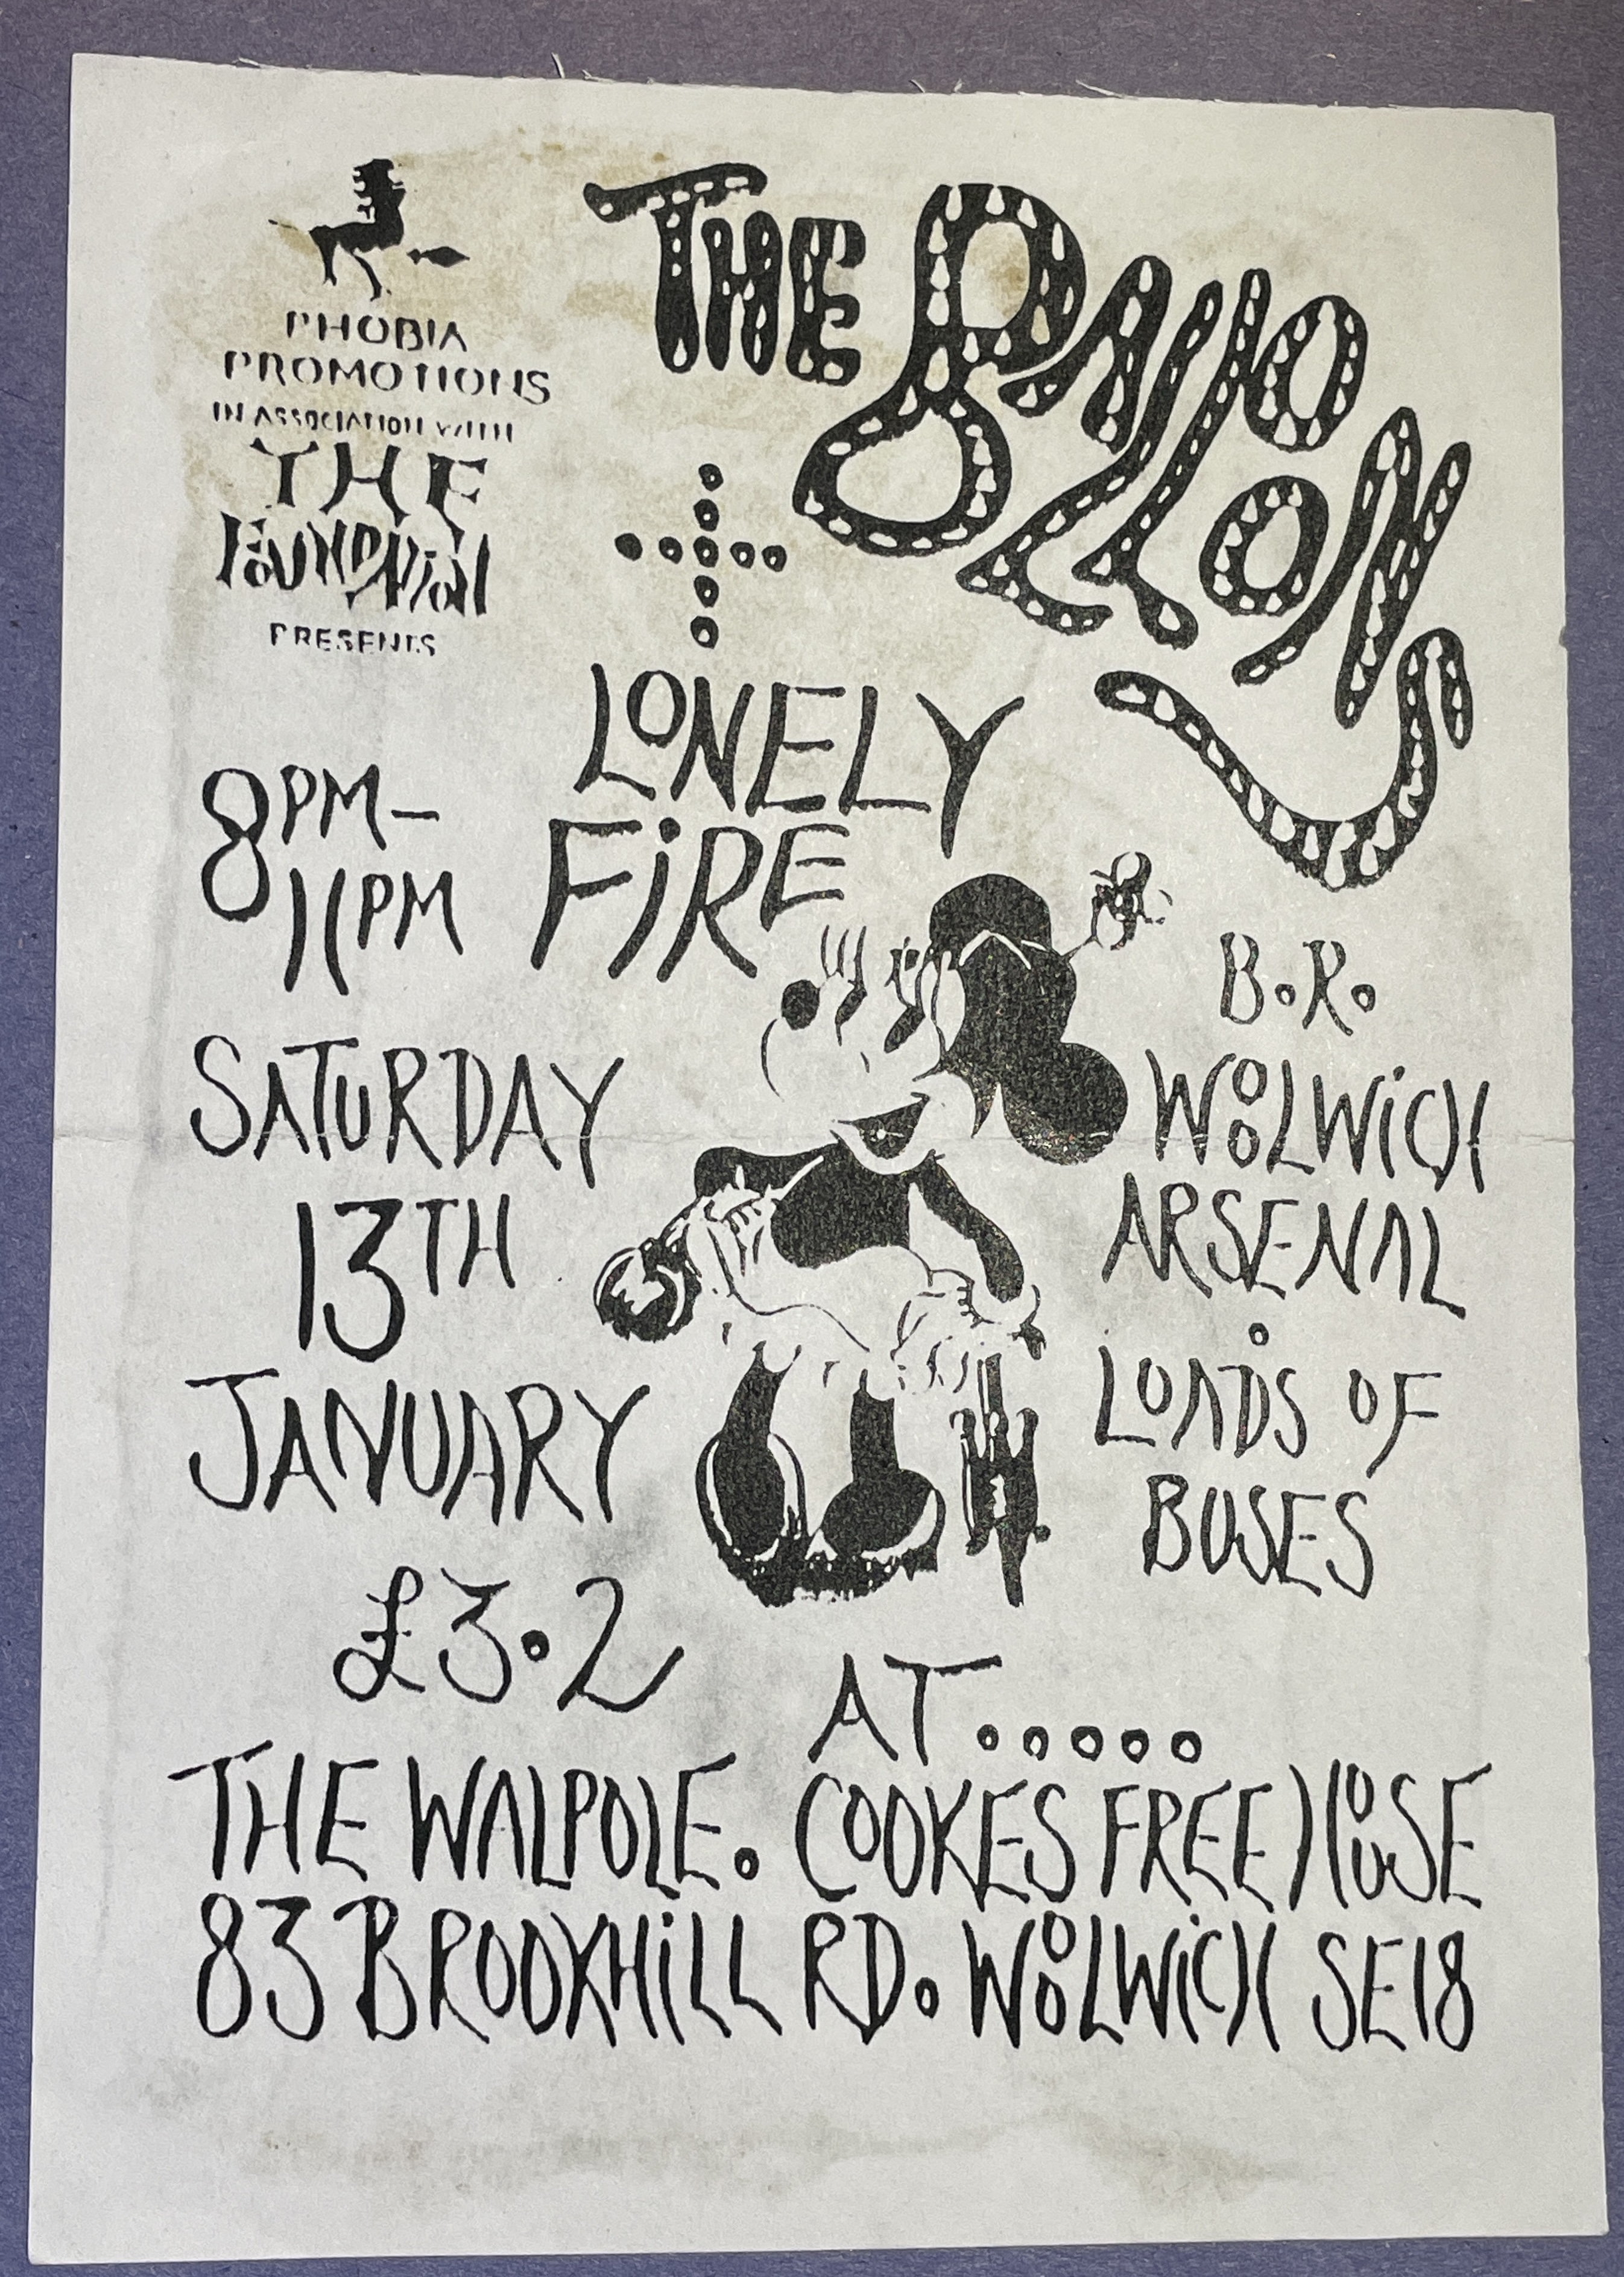 PHOBIA
PROMOTIONS
IN ASSOCIATION WITH
THE
FOUNDATION
PRESENTS
THE BALLOONS
+
LONELY
FIRE
8PM-
11PM
SATURDAY
13TH
JANUARY
£3.2
B.R.
WOOLWICH
ARSENAL
.
LOADS OF
BUSES
AT.....
THE WALPOLE. COOKES FREE HOUSE
83 BROOKHILL RD. WOOLWICH SE18